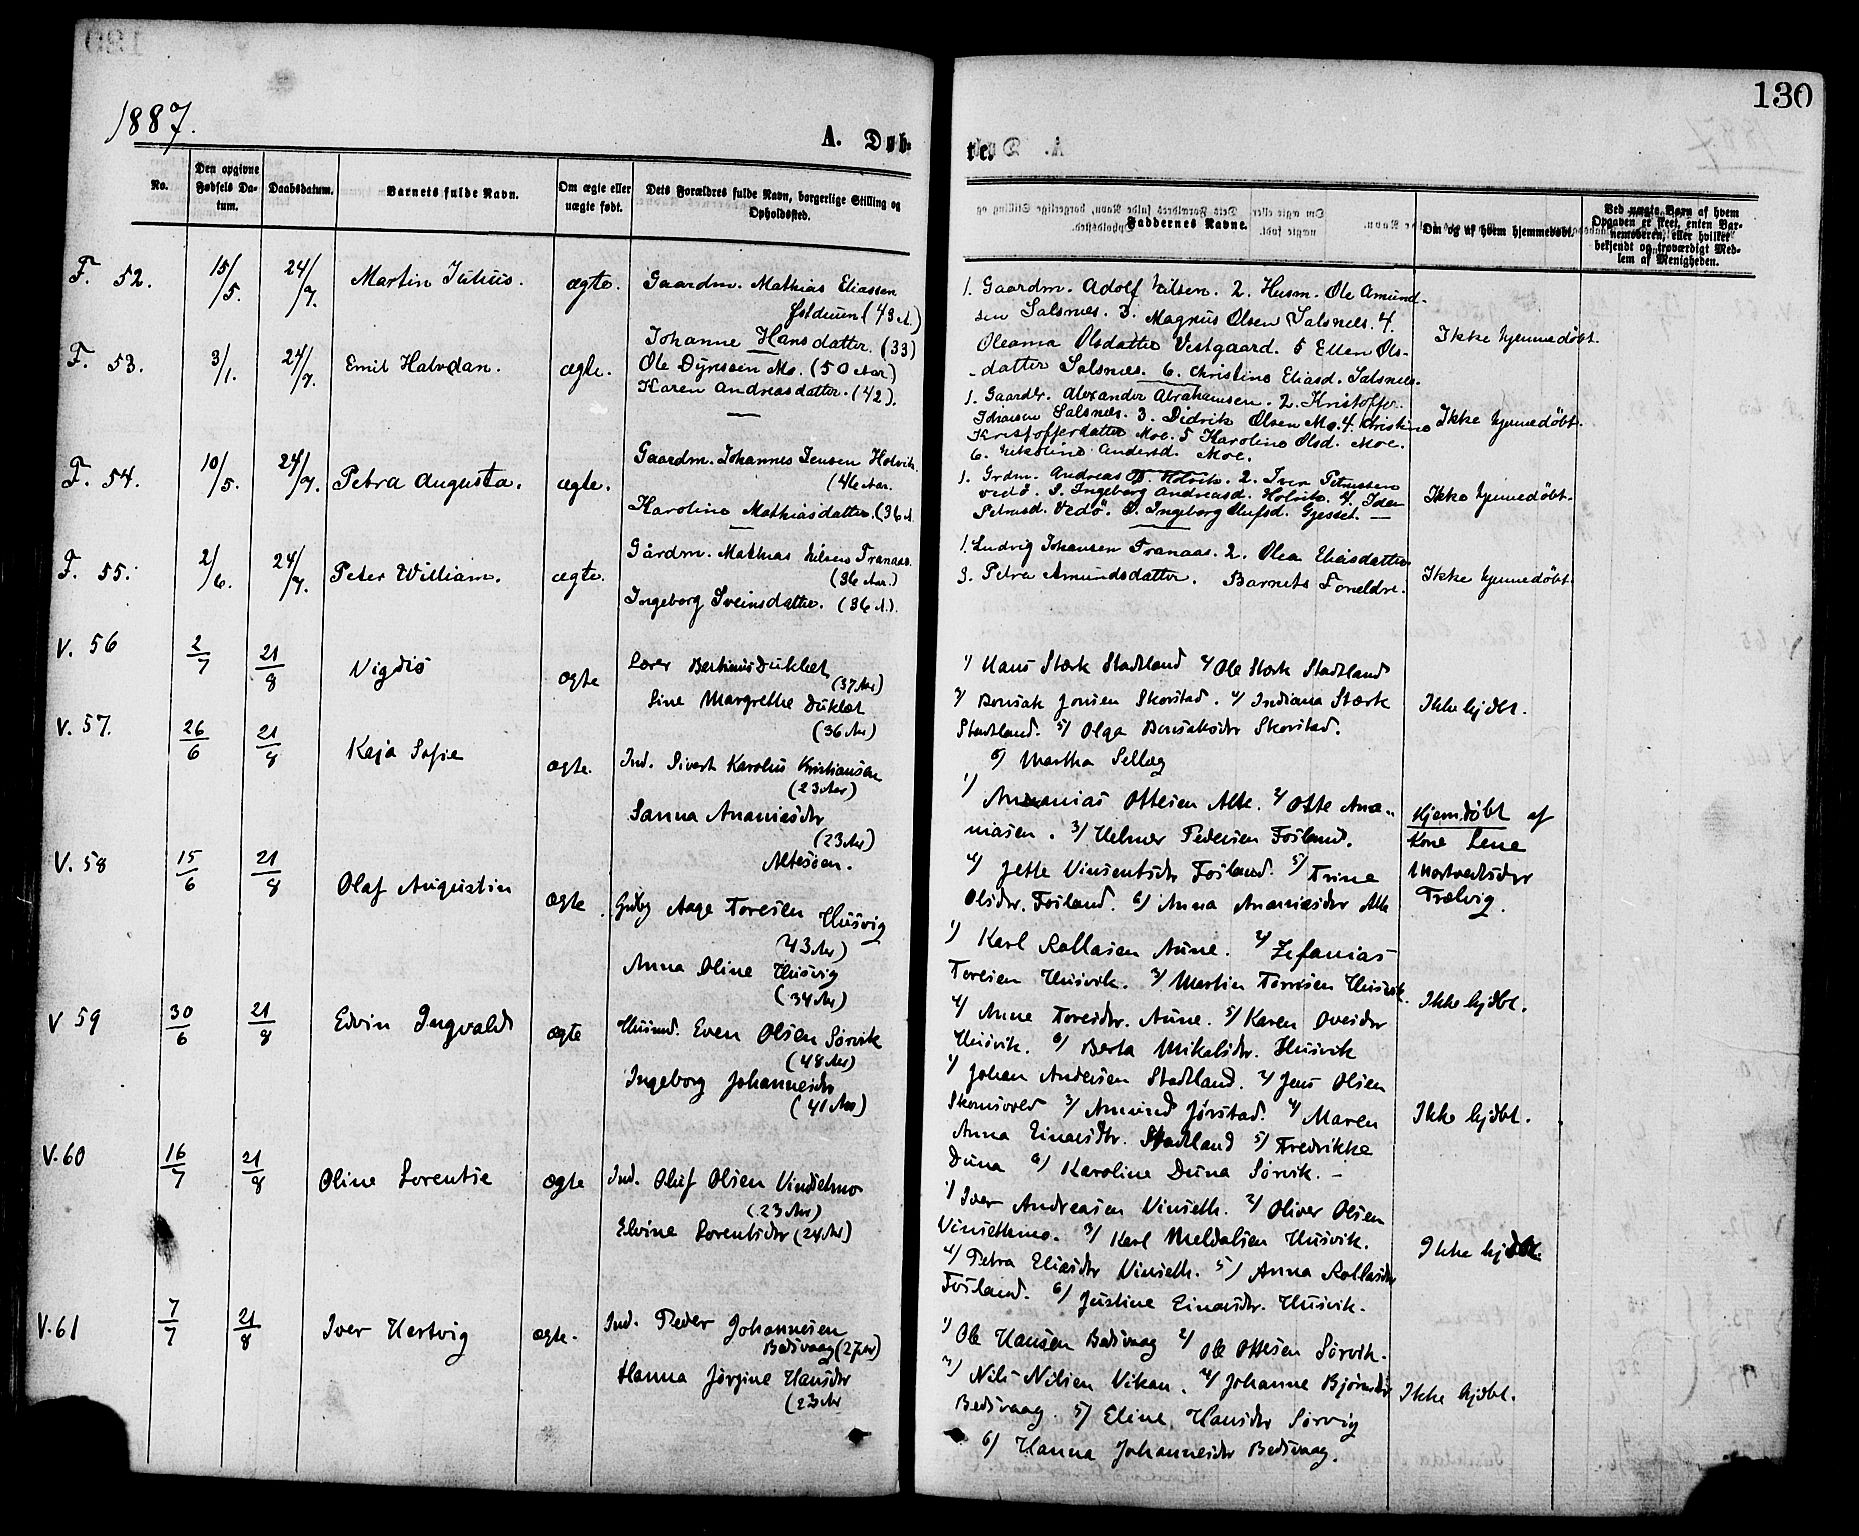 130
1887.
A. Døb-
te.
No.
Den opgivne Fødsels Da-tum.
Daabsdatum.
Barnets fulde Navn.
Om ægte eller uægte født.
Dets Forældres fulde Navn, borgerlige Stilling og Opholdssted.
Faddernes Navne.
Om og af hvem hjemmedøbt.
Ved uægte Barn af hvem Opgaven er skeet, enten Bar-nemoderen, eller hvilket bekjendt og troværdigt Med-lem af Menigheden.
F. 52. 15/5. 24/7. Martin Julius. ægte.
Gaardm. Mathias Eliassen
(43 A.)
Johanne Hansdatter. (33)
1. Gaardm. Adolf Nilsen. 2. Husm. Ole Amund-
sen Salsnes. 3. Magnus Olsen Salsnes. 4.
Oleanna Olsdatter Vestgaard. 5 Ellen Ols-
datter Salsnes. 6. Christine Eliasd. Salsnes.
Ikke hjemmedøbt.
F. 53. 3/1. 24/7. Emil Halvdan. ægte.
Ole Dynesen Mo. (50 Aar)
Karen Andreasdatter. (42).
1. Gaardbr. Alexander Abrahamsen. 2. Kristoffer
Johansen Salsnes. 3. Didrik Olsen Mo. 4. Christine
Kristofferdatter Moe. 5 Karoline Olsd. Moe.
6. Nikoline Andersd. Moe.
Ikke hjemmedøbt.
F. 54. 10/5. 24/7. Petra Augusta. ægte.
Gaardm. Johannes Jensen Holvik.
(46 Aar.
Karoline Mathiasdatter. (36 A.
1. Grdm. Andreas Holvik. 2. Iver Petersen
Vedø. 3. Ingeborg Andreasd. Holvik. 4. Ida
Petersd. Vedö. 5. Ingeborg Olufsd. Gjessel.
Ikke hjemmedøbt.
F. 55. 2/6. 24/7. Peter William. ægte.
Gårdm. Mathias Nilsen Tranaas.
(36 Aar.)
Ingeborg Sveinsdatter. (36 A.).
1. Ludvig Johansen Tranaas. 2. Olea Eliasdatter
3. Petra Amundsdatter. Barnets Foreldre.
Ikke hjemmedøbt.
V. 56 2/7 21/8 Vigdis ægte
Lærer Bertinius Duklæt
(37 Aar)
Line Margrethe Duklæt
(36 Aar)
1/ Hans Stærk Stadtland 2/ Ole Stærk Stadtland
3/ Bonsak Jonsen Skorstad. 4/ Indiana Stærk
Stadtland. 5/ Olga Bonsaksdtr Skorstad.
6/ Martha Sellæg
Ikke hjdbt.
V. 57. 26/6 21/8 Kaja Sofie ægte.
Ind. Sivert Karolius Kristiansen
(23 Aar)
Sanna Ananiasdtr
(23 Aar)
Altesøen.
1/ Ananias Ottesen Alte. 2/ Otte Ana-
niasen. 3/ Helmer Pedersen Fosland.
4/ Jette Vinsentsdtr Fosland. 5/ Trine
Olsdtr. Fosland. 6/ Anna Ananiasdtr Alte
Hjemdøbt af
Kone Lene
Mortvedtsdtr
Trælvig.
V. 58 15/6 21/8 Olaf Augustin ægte
Grdbg Aage Toresen Husvig
(43 Aar)
Anna Oline Husvig
(34 Aar)
1/ Karl Rollasen Aune. 2/ Zefanias
Toresen Husvik. 3/ Martin Torresen Husvik.
4/ Anne Toresdtr. Aune. 5/ Karen Ovesdtr
Husvik. 6/ Berta Mikalsdtr. Husvik
Ikke hjdbt.
V 59 30/6 21/8 Edvin Ingvald ægte
Husmd. Even Olsen Sørvik
(48 Aar)
Ingeborg Johannesdtr
(41 Aar)
1/ Johan Andersen Stadtland. 2/ Jens Olsen
Skomsvold 3/ Amund Jørstad. 4/ Maren
Anna Einarsdtr. Stadtland 5/ Fredrikke
Duna 6/ Karoline Duna Sørvik. –
Ikke hjdbt.
V. 60 16/7 21/8 Oline Lorentse ægte
Ind. Oluf Olsen Vinsethmo
(23 Aar)
Elvine Lorentsdtr (24 Aar)
1/ Iver Andreasen Vinseth. 2/ Oliver Olsen
Vinsethmo. 3/ Karl Meldalsen Husvik.
4/ Petra Eliasdtr Vinseth. 5/ Anna Rollasdtr
Fosland. 6/ Justine Einarsdtr. Husvik.
Ikke hjdbt.
V. 61 7/7 21/8 Iver Hertvig ægte.
Ind. Peder Johannesen
Bedsvaag (27 Aar)
Hanna Jørgine Hansdtr
(23 Aar
1/ Ole Hansen Bedsvaag 2/ Ole Ottesen Sørvik.
3/ Nils Nilsen Vikan. 4/ Johanne Bjørnsdtr
Bedsvaag. 5/ Eline Hansdtr Sørvig
6/ Hanna Johannesdtr Bedsvaag.
Ikke hjdbt.